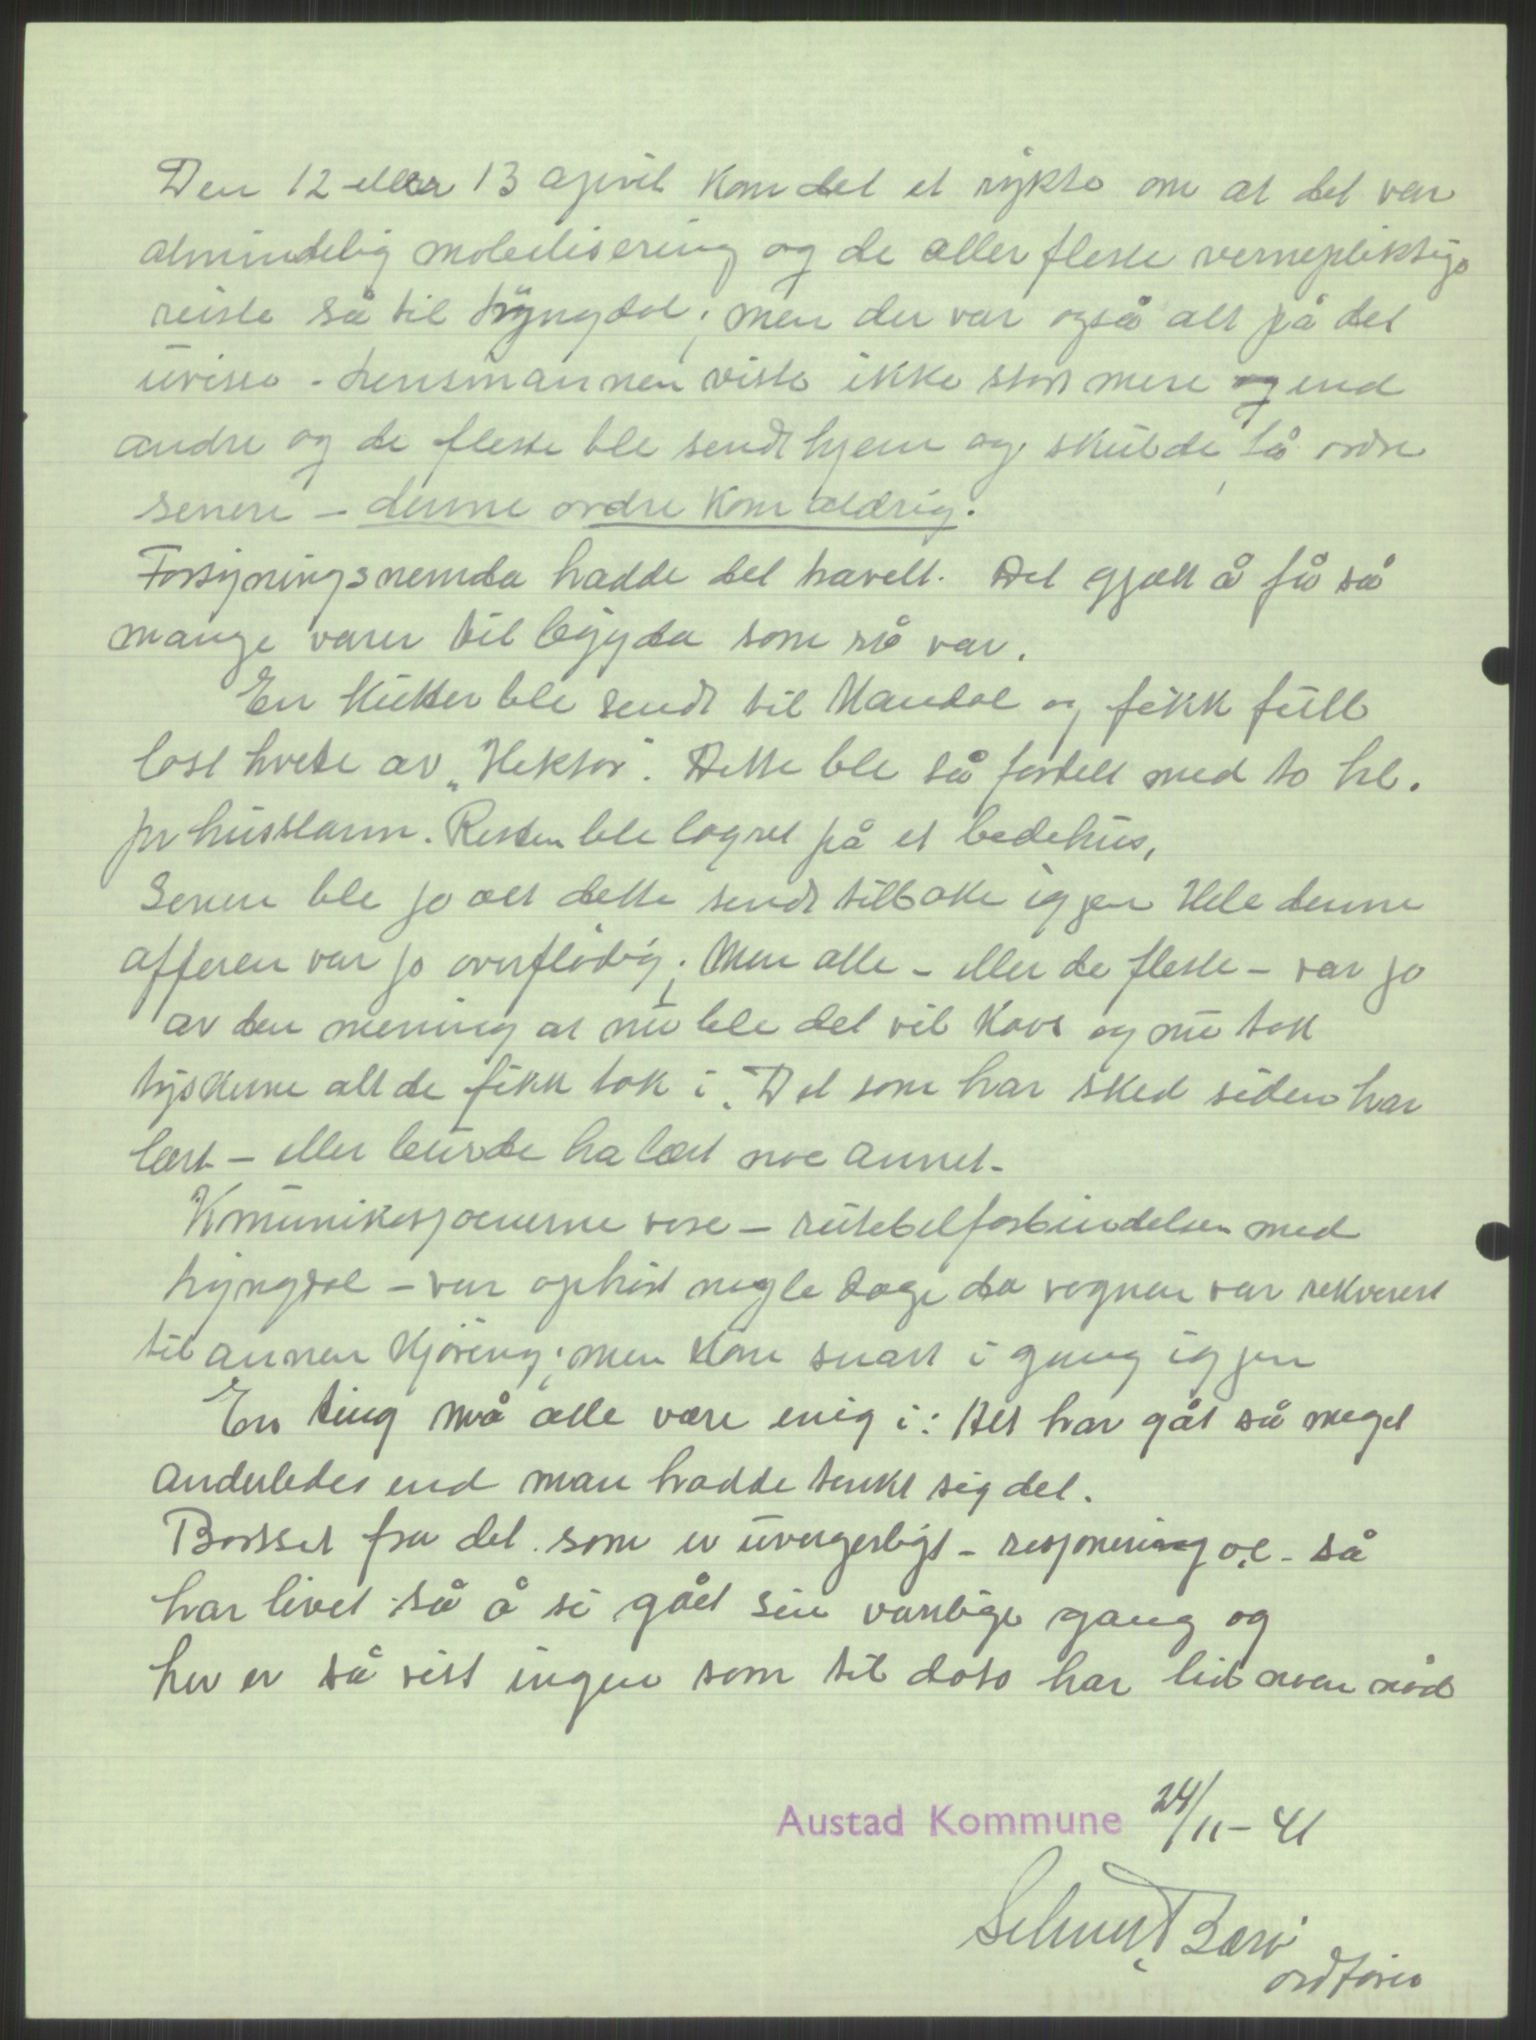 Den 12 eller 13 april kom det et rykte om at det var
almindelig mobilisering og de aller fleste vernepliktige
reiste så til Lyngdal; men der var også alt på det
uvisse - Lensmannen viste ikke stort mere end
andre og de fleste ble sendt hjem og skulde få ordre
senere - denne ordre kom aldrig.
Forsyningsnemda hadde det travelt. Det gjalt å få så
mange varer til bygda som rå var.
En kutter ble sendt til Mandal og fikk full
last hvete av "Hektor". Dette ble så fordelt med to hl.
pr husstann. Resten ble lagret på et bedehus,
Senere ble jo alt dette sendt tilbake igjen Hele denne
afferen var jo overflödig; Men alle - eller de fleste - var jo
av den mening at nu ble det vil kavt og nu tok
tyskerne alt de fikk tak i. Det som har sked siden har
lært - eller burde ha lært noe annet.
Kmunikasjonerne vore - rutebilforbindelsen med
Lyngdal - var ophört nogle dage da vognen var rekverert
til annen kjöring; men kom snart i gang igjen
En ting må alle være enig i: Det har gåt så meget
anderledes end man hadde tenkt sig det.
Bortset fra det som er uvergerligt - rasjonering o.l - så
har livet så å si gåt sin vanlige gang og
her er så vist ingen som til dato har lid noen nöd
Austad Kommune 24/11-41
ordförer